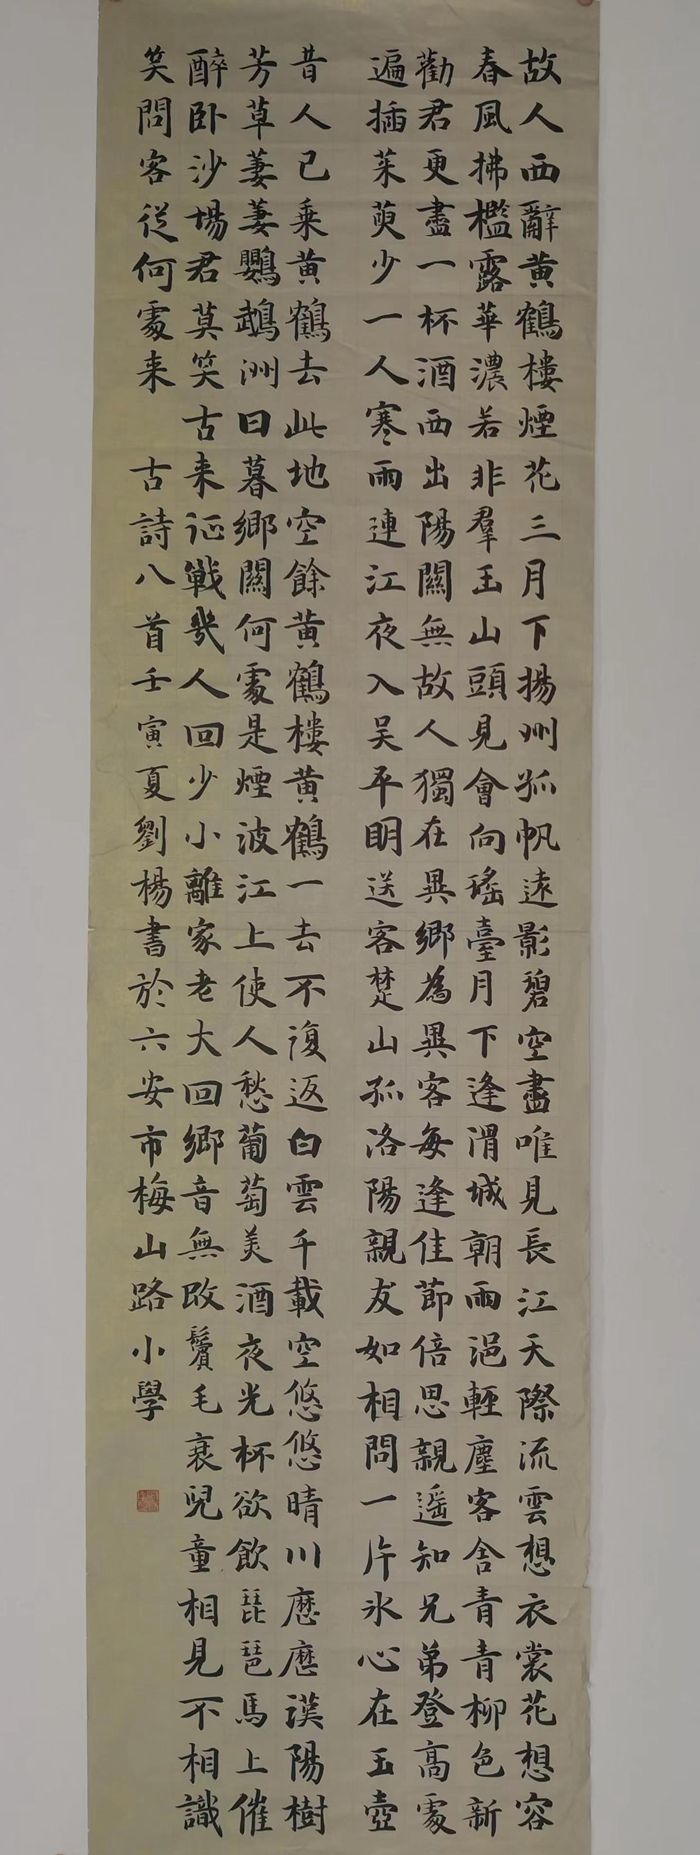 故人西辭黄鶴樓煙花三月下揚州孤帆遠影碧空盡唯見長江天際流雲想衣裳花想容
春風拂檻露華濃若非羣玉山頭見會向瑤臺月下逢渭城朝雨浥輕塵客舍青青柳色新
勸君更盡一杯酒西出陽關無故人獨在異鄉為異客每逢佳節倍思親遥知兄弟登高處
遍插茱萸少一人寒雨連江夜入吴平明送客楚山孤洛陽親友如相問一片冰心在玉壺
昔人已乘黄鶴去此地空餘黄鶴樓黄鶴一去不復返白雲千載空悠悠晴川歷歷漢陽樹
芳草萋萋鸚鵡洲日暮鄉關何處是煙波江上使人愁葡萄美酒夜光杯欲飲琵琶馬上催
醉卧沙場君莫笑古来征戰幾人回少小離家老大回鄉音無改鬢毛衰兒童相見不相識
笑問客從何處来 古詩八首壬寅夏劉楊書於六安市梅山路小學